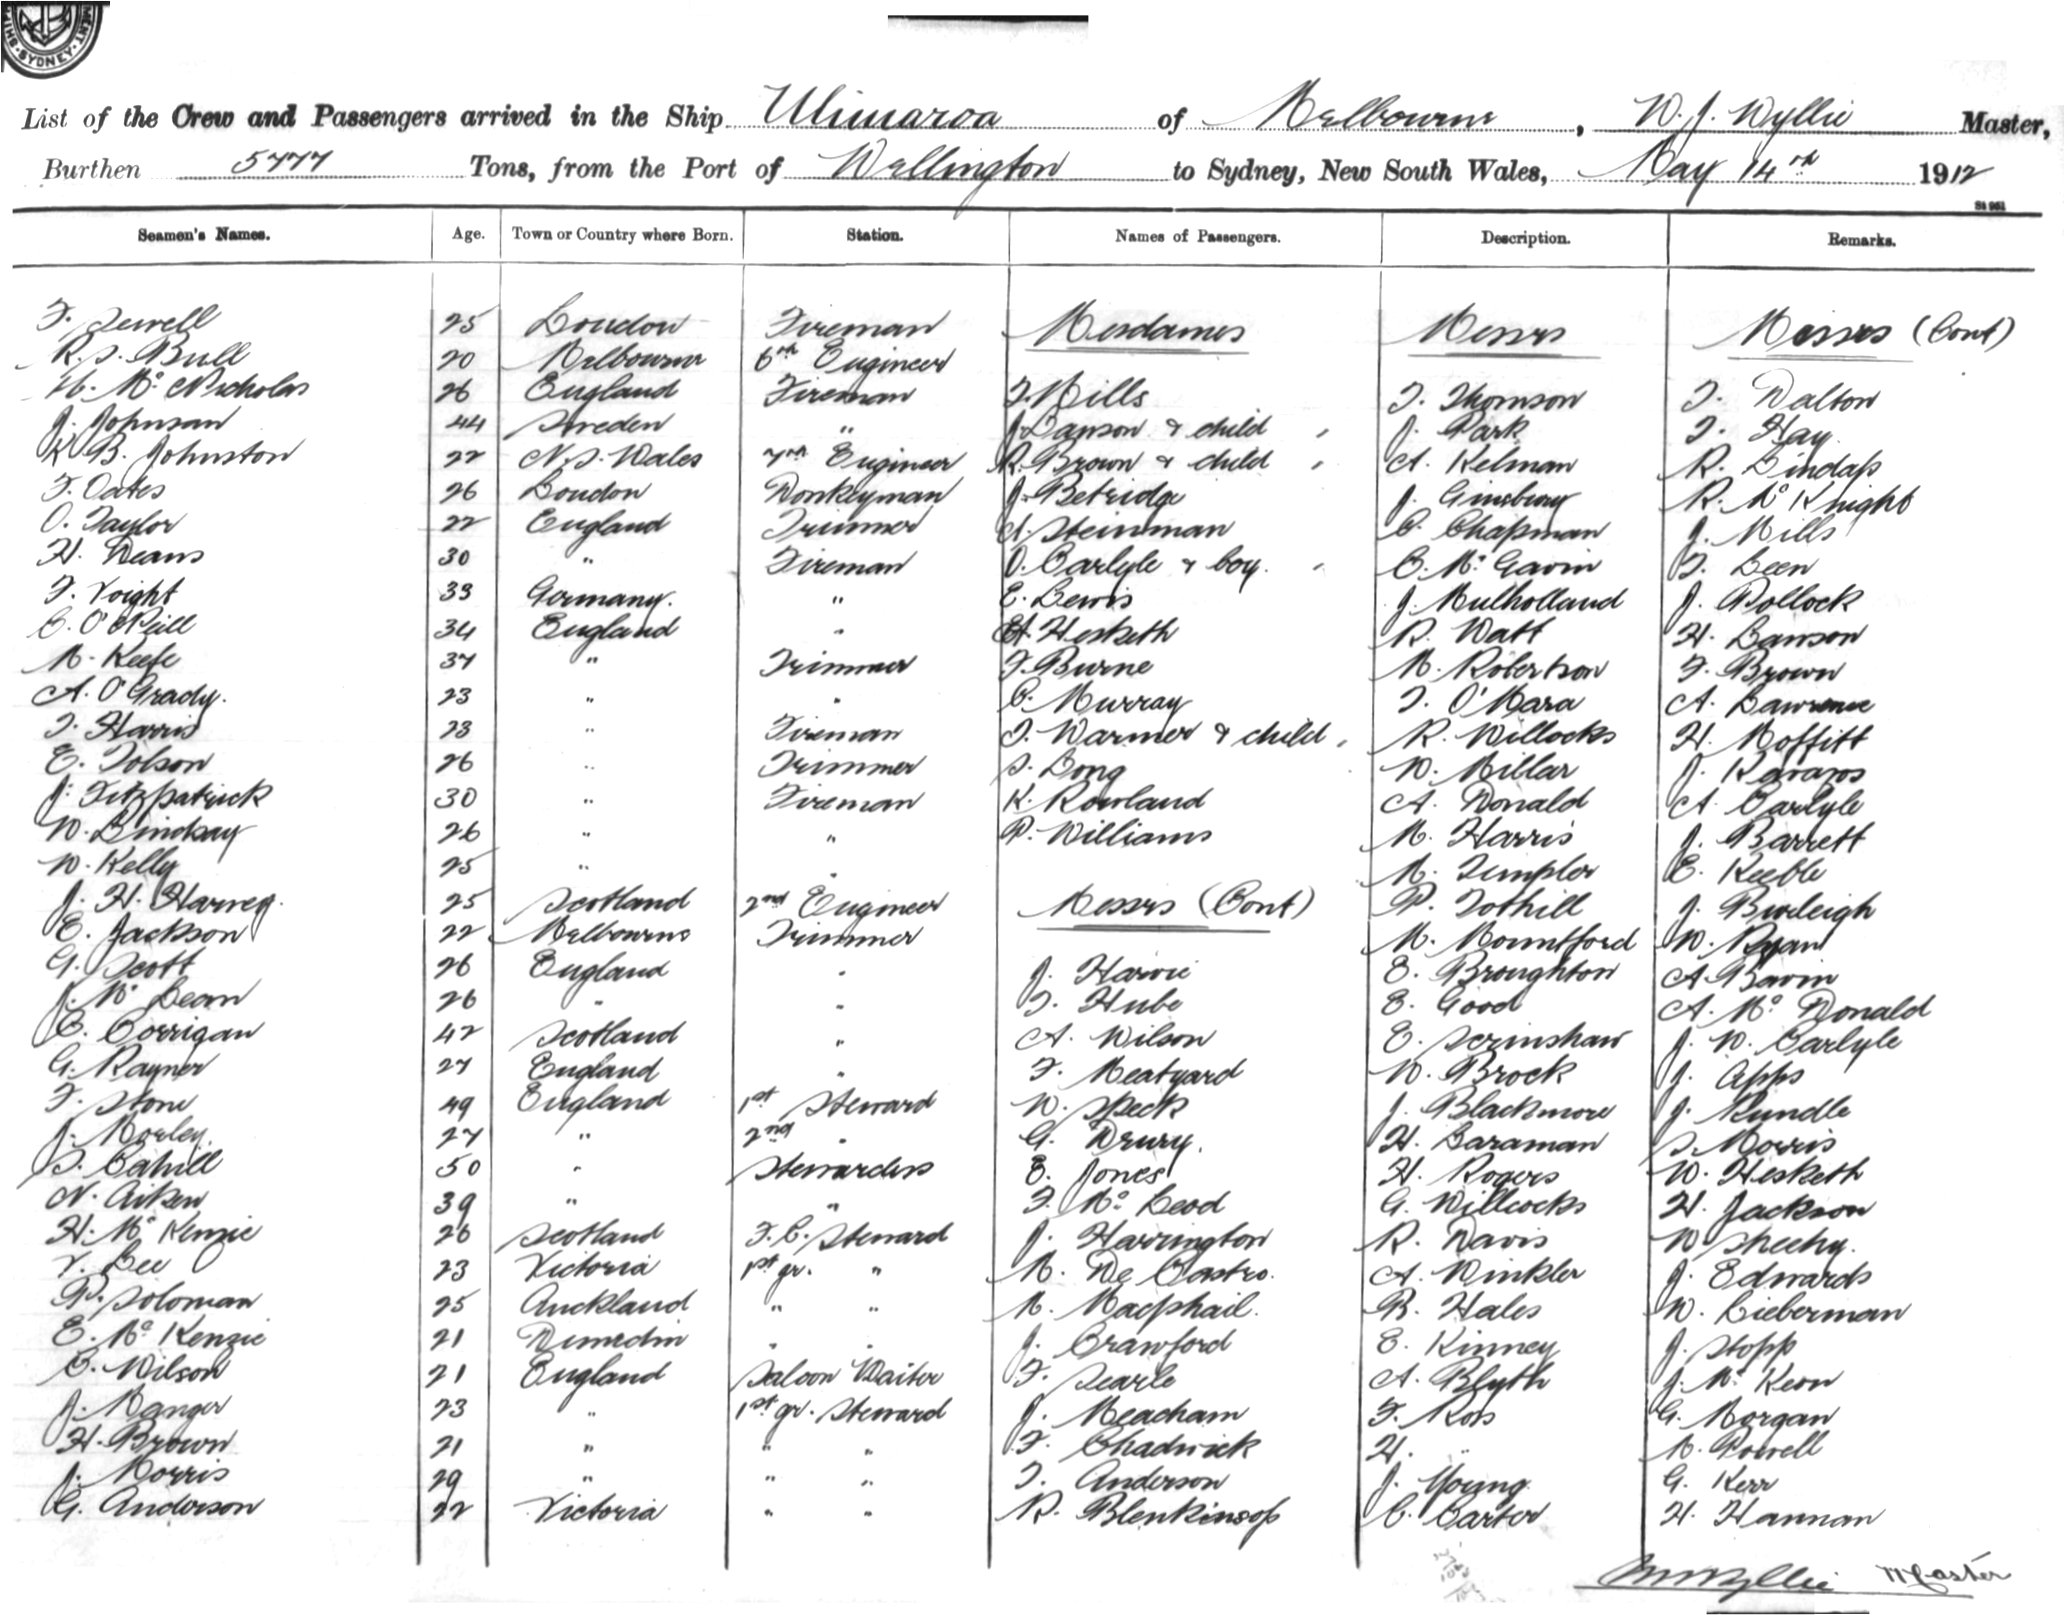 SYDNEY
List of the Crew and Passengers arrived in the Ship Ulimaroa of Melbourne, W. J. Wyllie Master,
Burthen 5777 Tons, from the Port of Wellington to Sydney, New South Wales, May 14th 1912
St 961
Seamen's Names. Age. Town or Country where Born. Station. Names of Passengers. Description. Remarks.
F. Sewell 25 London Fireman Mesdames Messrs Messrs (Cont)
R. S. Bull 20 Melbourne 6th Engineer
H. Mc Nicholas 26 England Fireman F. Mills T. Thomson T. Dalton
J. Johnson 44 Sweden " J. Lawson & child J. Park T. Hay
K B. Johnston 22 N. S. Wales 7th Engineer R. Brown & child A. Kelman R. Lindop
F. Oates 26 London Donkeyman J. Betridge J. Ginsburg R. Mc Knight
O. Taylor 22 England Trimmer A. Steinman C. Chapman J. Mills
H. Deans 30 " Fireman O. Carlyle & boy. C. Mc Gavin T. Leen
F. Voight 33 Germany. " E. Lewis J. Mulholland J. Pollock
C. O'Neill 34 England " H. Hesketh R. Watt H. Lawson
M. Keefe 37 " Trimmer F. Burne M. Robertson F. Brown
A. O'Grady. 23 " " C. Murray T. O'Mara A. Lawrence
T. Harris 23 " Fireman T. Warmer & child R. Willocks H. Moffitt
E. Tolson 26 " Trimmer S. Long W. Millar J.
J. Fitzpatrick 30 " Fireman K. Rowland A. Donald A. Carlyle
W. Lindsay 26 " " P. Williams M. Harris J. Barrett
W. Kelly 25 " " M. Templer E. Keeble
J. H. Harvey. 25 Scotland 2nd Engineer Messrs (Cont) P. Tothill J. Burleigh
E. Jackson 22 Melbourne Trimmer M. Mountford W. Ryan
G. Scott 26 England " J. Harvie E. Broughton A. Bavin
J. Mc Lean 26 " " T. Hube E. Good A. Mc Donald
C. Corrigan 42 Scotland " A. Wilson E. Scrimshaw J. W. Carlyle
G. Rayner 27 England " F. Meatyard W. Brock J. Apps
F. Stone 49 England 1st Steward W. Speck J. Blackmore J. Rundle
J. Morley. 27 " 2nd " G. Drury. H. Laraman S. Morris
S. Cahill 50 " Stewardess E. Jones H. Rogers W. Hesketh
N. Aitken 39 " " F. Mc Leod G. Willcocks H. Jackson
H. Mc Kenzie 26 Scotland F. C. Steward J. Harrington R. Davis W Sheehy.
V. Lee 23 Victoria 1st gr. " M. De Castro. A. Winkler J. Edwards
P. Soloman 25 Auckland " " M. Macphail. R. Hales W. Lieberman
E. Mc Kenzie 21 Dunedin " " J. Crawford E. Kinney J. Stopp
C. Wilson 21 England Saloon Waiter F. Searle A. Blyth J. Mc Keon
J. Manger 23 " 1st gr. Steward J. Meacham F. Ross G. Morgan
H. Brown 21 " " " F. Chadwick H. " M. Powell
J. Morris 29 " " " T. Anderson J. Young G. Kerr
G. Anderson 22 Victoria " " R. Blenkinsop C. Carter H. Hannan
Wyllie Master